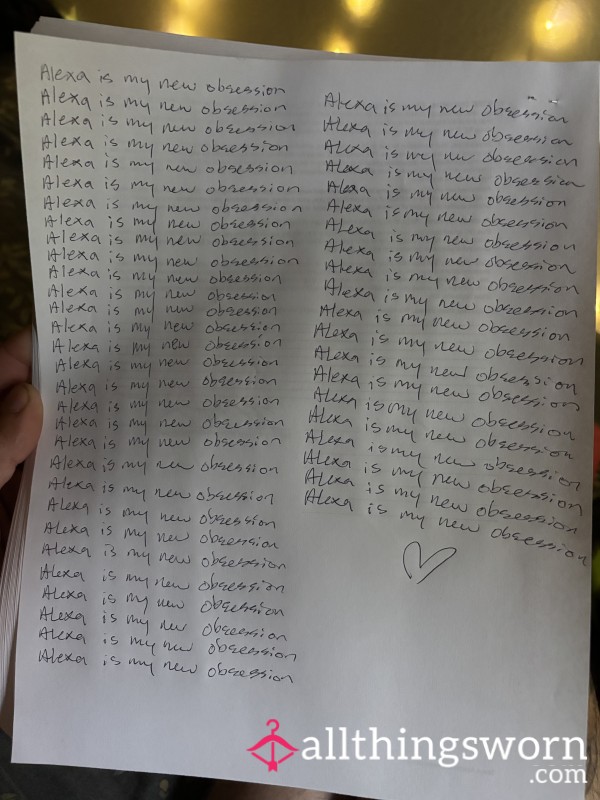 Alexa is my new obsession
Alexa is my new obsession
Alexa is my new obsession
Alexa is my new obsession
Alexa is my new obsession
Alexa is my new obsession
Alexa is my new obsession
Alexa is my new obsession
Alexa is my new obsession
Alexa is my new obsession
Alexa is my new obsession
Alexa is my new obsession
Alexa is my new obsession
Alexa is my new obsession
Alexa is my new obsession
Alexa is my new obsession
Alexa is my new obsession
Alexa is my new obsession
Alexa is my new obsession
Alexa is my new obsession
Alexa is my new obsession
Alexa is my new obsession
Alexa is my new obsession
Alexa is my new obsession
Alexa is my new obsession
Alexa is my new obsession
Alexa is my new obsession
Alexa is my new obsession
Alexa is my new obsession
Alexa is my new obsession
Alexa is my new obsession
Alexa is my new obsession
Alexa is my new obsession
Alexa is my new obsession
Alexa is my new obsession
Alexa is my new obsession
Alexa is my new obsession
Alexa is my new obsession
Alexa is my new obsession
Alexa is my new obsession
Alexa is my new obsession
Alexa is my new obsession
Alexa is my new obsession
Alexa is my new obsession
Alexa is my new obsession
Alexa is my new obsession
Alexa is my new obsession
Alexa is my new obsession
Alexa is my new obsession
Alexa is my new obsession
allthingsworn
.com